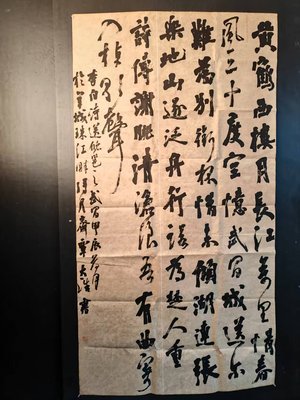 黃鶴西樓月長江萬里情春
風三十度空憶武昌城送尔
難為別銜杯惜未傾湖連張
樂地山逐泛舟行諾為楚人重
詩傳謝朓清滄浪吾有曲寄
入棹歌聲
李白詩送儲邕之武昌甲辰月
於羊城珠江畔月齋書